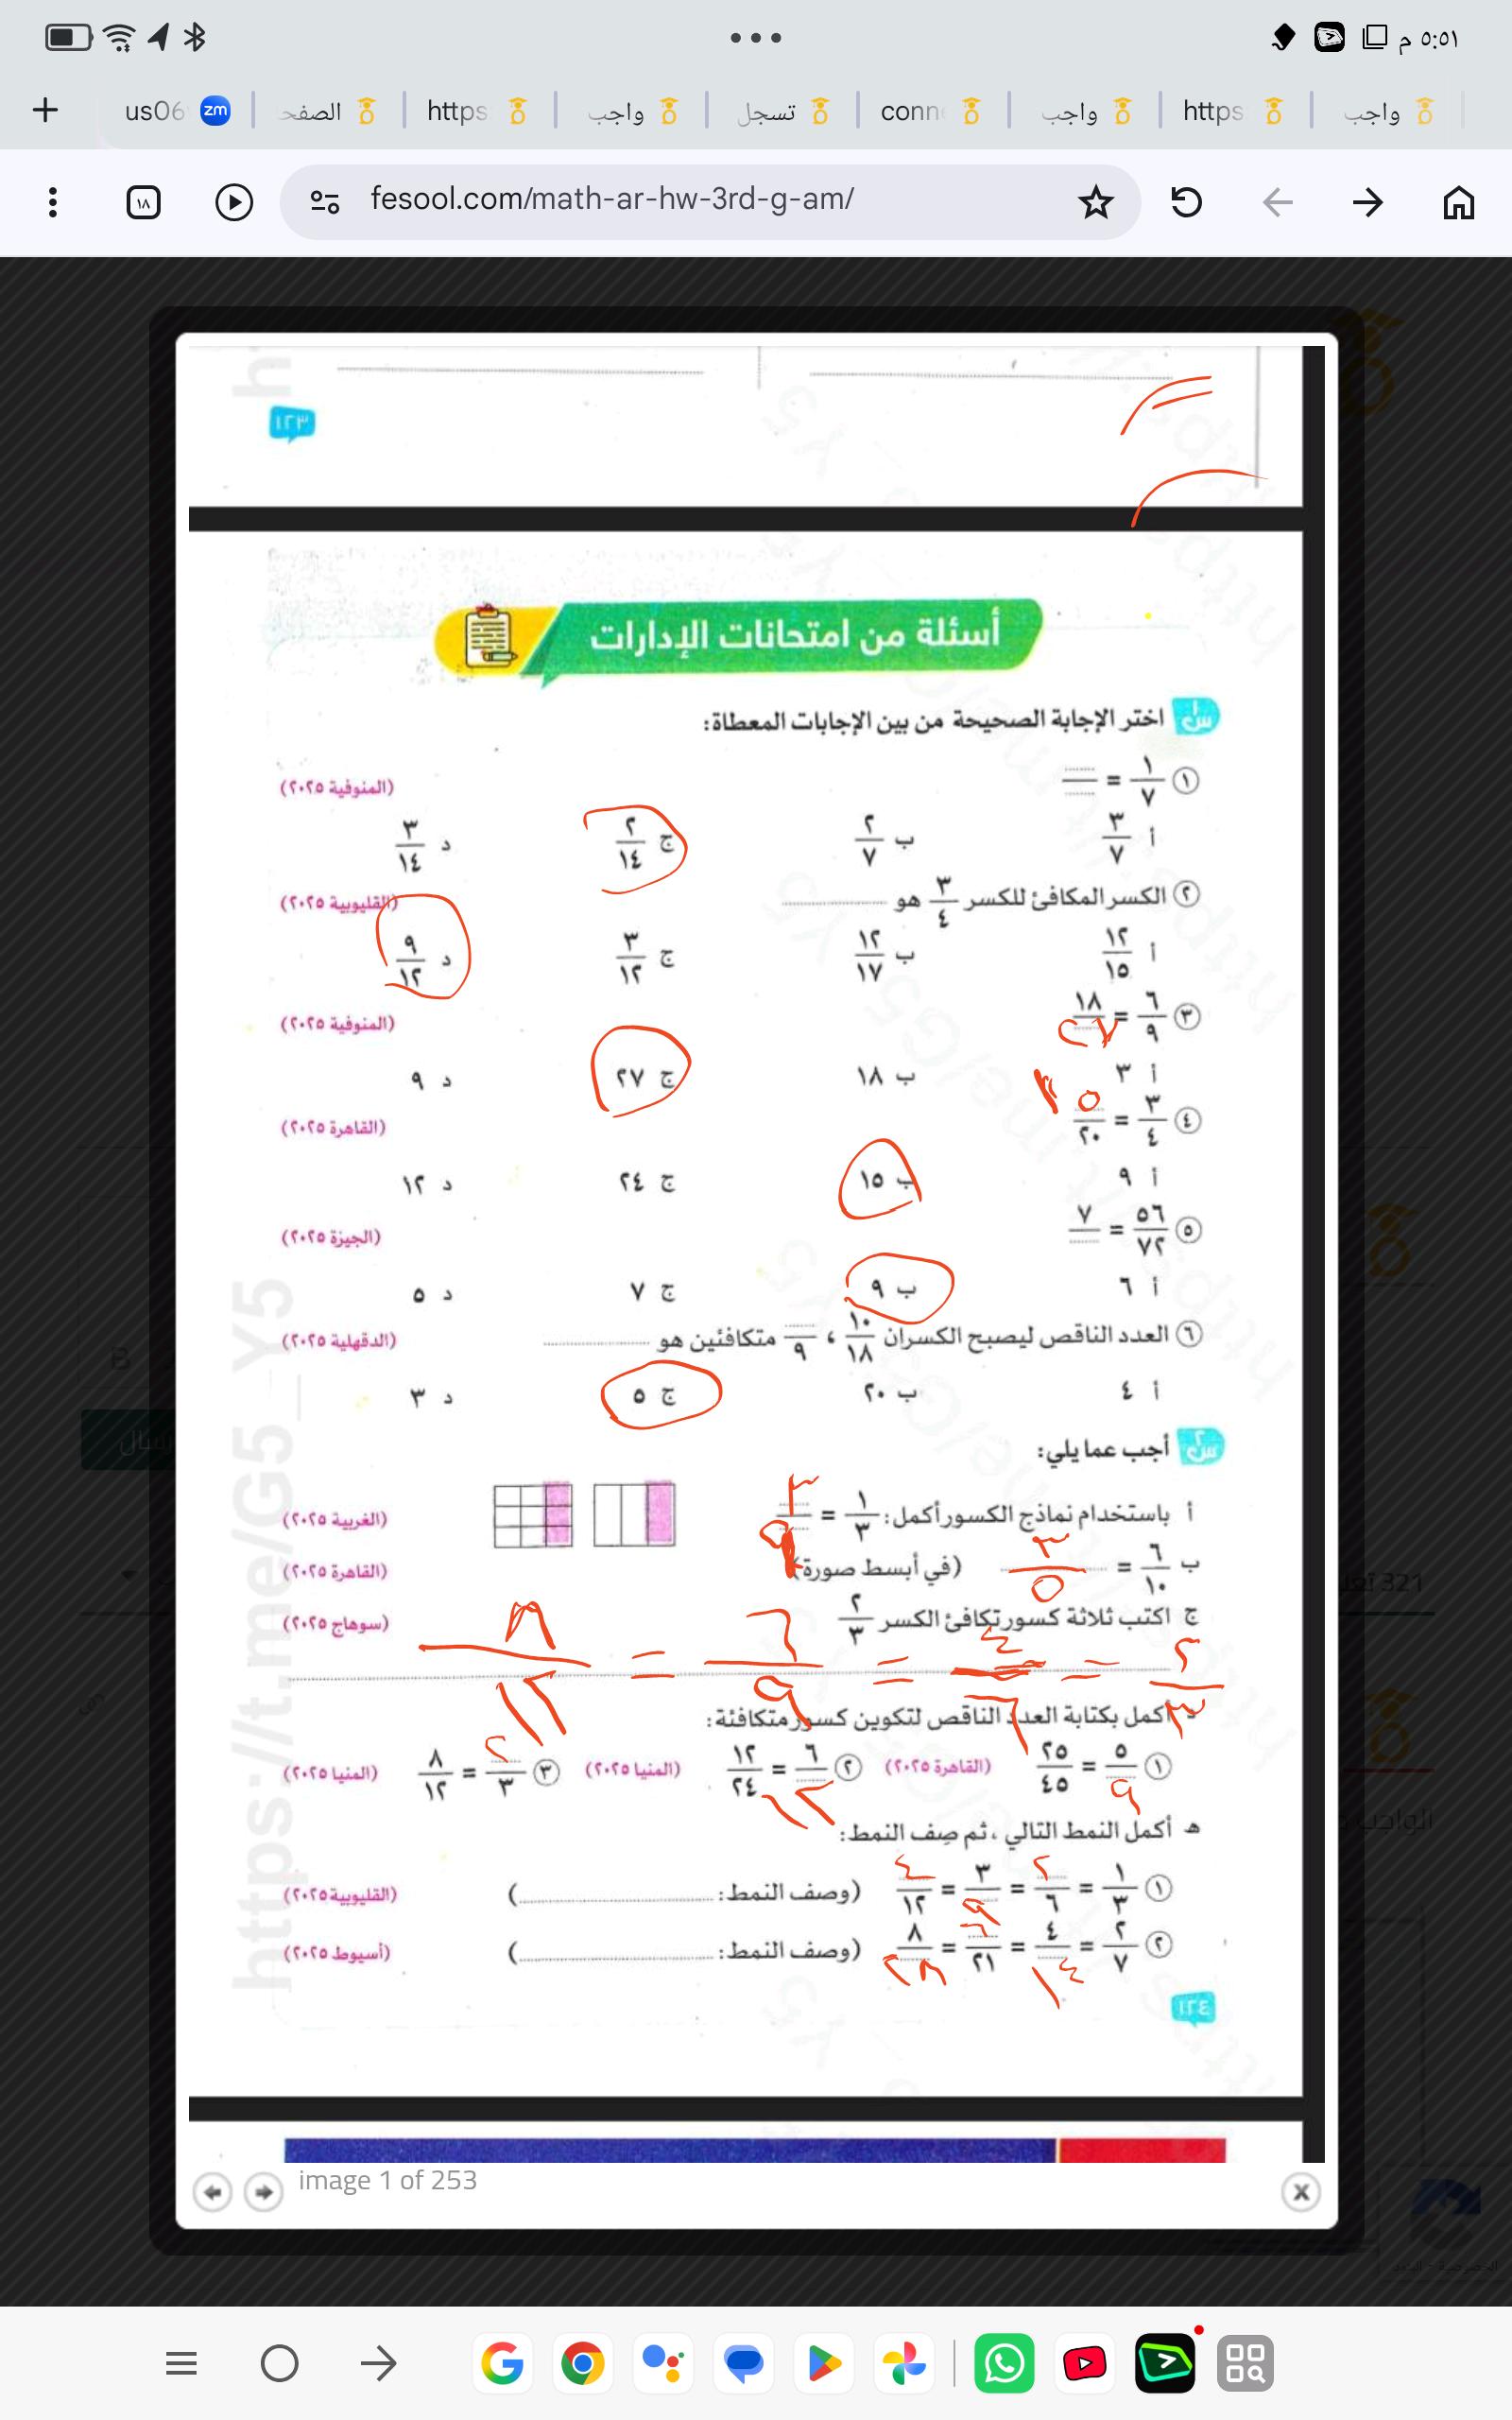 ٥:٥١ م
us06 zm الصفحـ https واجب تسجل conn واجب https واجب
fesool.com/math-ar-hw-3rd-g-am/
١٨
١٢٣
أسئلة من امتحانات الإدارات
س١ اختر الإجابة الصحيحة من بين الإجابات المعطاة:
١ ١/٧ = ...... (المنوفية ٢٠٢٥)
أ ٣/٧ ب ٢/٧ ج ٢/١٤ د ٣/١٤
٢ الكسر المكافئ للكسر ٣/٤ هو ............ (القليوبية ٢٠٢٥)
أ ١٢/١٥ ب ١٢/١٧ ج ٣/١٢ د ٩/١٢
٣ ٦/٩ = ١٨/٢٧ (المنوفية ٢٠٢٥)
أ ٣ ب ١٨ ج ٢٧ د ٩
٤ ٣/٤ = ١٥/٢٠ (القاهرة ٢٠٢٥)
أ ٩ ب ١٥ ج ٢٤ د ١٢
٥ ٥٦/٧٢ = ٧/...... (الجيزة ٢٠٢٥)
أ ٦ ب ٩ ج ٧ د ٥
٦ العدد الناقص ليصبح الكسران ١٠/١٨ ، ....../٩ متكافئين هو ............ (الدقهلية ٢٠٢٥)
أ ٤ ب ٢٠ ج ٥ د ٣
س٢ أجب عما يلي:
أ باستخدام نماذج الكسور أكمل: ١/٣ = ٣/٩ (الغربية ٢٠٢٥)
ب ٦/١٠ = ٣/٥ (في أبسط صورة) (القاهرة ٢٠٢٥)
ج اكتب ثلاثة كسور تكافئ الكسر ٢/٣ (سوهاج ٢٠٢٥)
٢/٣ = ٤/٦ = ٦/٩ = ٨/١٢
د أكمل بكتابة العدد الناقص لتكوين كسور متكافئة:
١ ٥/٩ = ٢٥/٤٥ (القاهرة ٢٠٢٥) ٢ ٦/١٢ = ١٢/٢٤ (المنيا ٢٠٢٥) ٣ ٢/٣ = ٨/١٢ (المنيا ٢٠٢٥)
هـ أكمل النمط التالي، ثم صِف النمط:
١ ١/٣ = ٢/٦ = ٣/٩ = ٤/١٢ (وصف النمط: ............) (القليوبية ٢٠٢٥)
٢ ٢/٧ = ٤/١٤ = ٦/٢١ = ٨/٢٨ (وصف النمط: ............) (أسيوط ٢٠٢٥)
١٢٤
https://t.me/G5_Y5
image 1 of 253